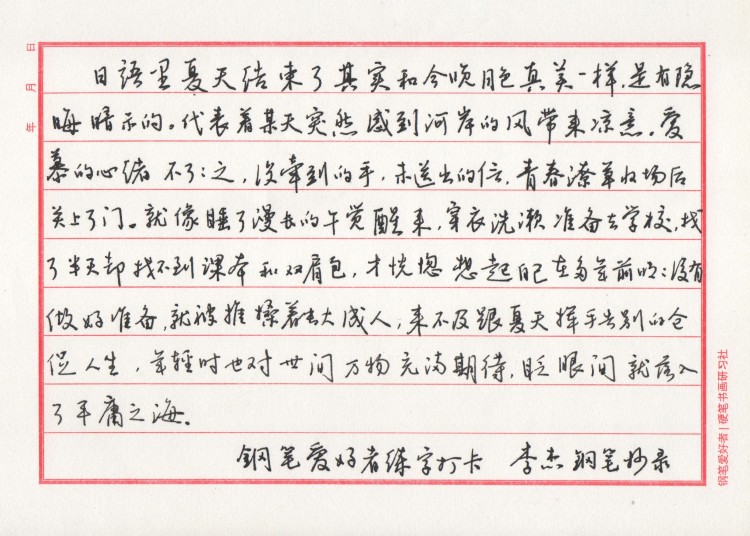 年 月 日
日語里夏天结束了其实和今晚月色真美一样,是有隐
晦暗示的。代表着某天突然感到河岸的风带来凉意。爱
慕的心绪不了了之,没牵到的手,未送出的信,青春潦草收场后
关上了门。就像睡了漫长的午觉醒来,穿衣洗漱准备去学校,找
了半天却找不到课本和双肩包,才恍惚想起自己在多年前明明没有
做好准备,就被推搡着去大成人,来不及跟夏天挥手告别的仓
促人生,年輕时也对世间万物充满期待,眨眼间就落入
了平庸之海。
鋼笔爱好者练字打卡 李杰鋼笔抄录
钢笔爱好者|硬笔书画研习社